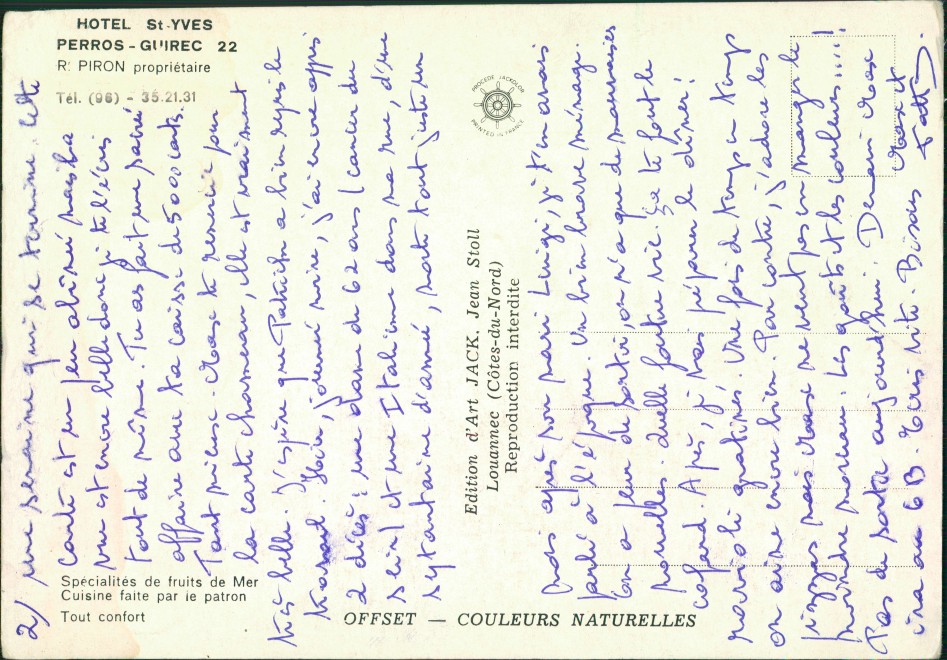 HOTEL St-YVES
PERROS-GUIREC 22
R. PIRON propriétaire
Tél. (96) - 35.21.31
Spécialités de fruits de Mer
Cuisine faite par le patron
Tout confort
OFFSET — COULEURS NATURELLES
PROCEDE JACKOLOR
PRINTED IN FRANCE
Edition d'Art JACK. Jean Stoll
Louannec (Côtes-du-Nord)
Reproduction interdite
2/ une semaine qui se termine. Cette
carte est un peu abîmé mais la
vue est encore belle donc je te l'écris
tout de même. Tu as fait une sacré
affaire avec ta caisse de 5000 cartes.
Tant mieux. Max te remercie pour
la carte chameau, elle est vraiment
très belle. J'espère que Patricken a bien repris le
travail. Hier, journée noire, j'ai encore appris
2 décès : une dame de 62 ans (cancer du
sein) et une Italienne dans ma rue, d'une
septantaine d'année, morte tout juste un
mois après son mari Luigi, je t'en avais
parlé à l'époque. Un bien brave ménage.
L'on a peur de sortir, on n'a que de mauvaises
nouvelles. Quelle foutue vie. Ça te fout le
cafard. Après, je vais préparer le dîner :
ravioli gratinés. Une fois de temps en temps
on aime encore bien. Par contre, j'adore les
pizzas mais Max ne veut pas en manger le
moindre morceau. Les goûts et les couleurs....!
Pas de sortie aujourd'hui. Demain Max
ira au 6B. Ecris vite. Bisous Max et